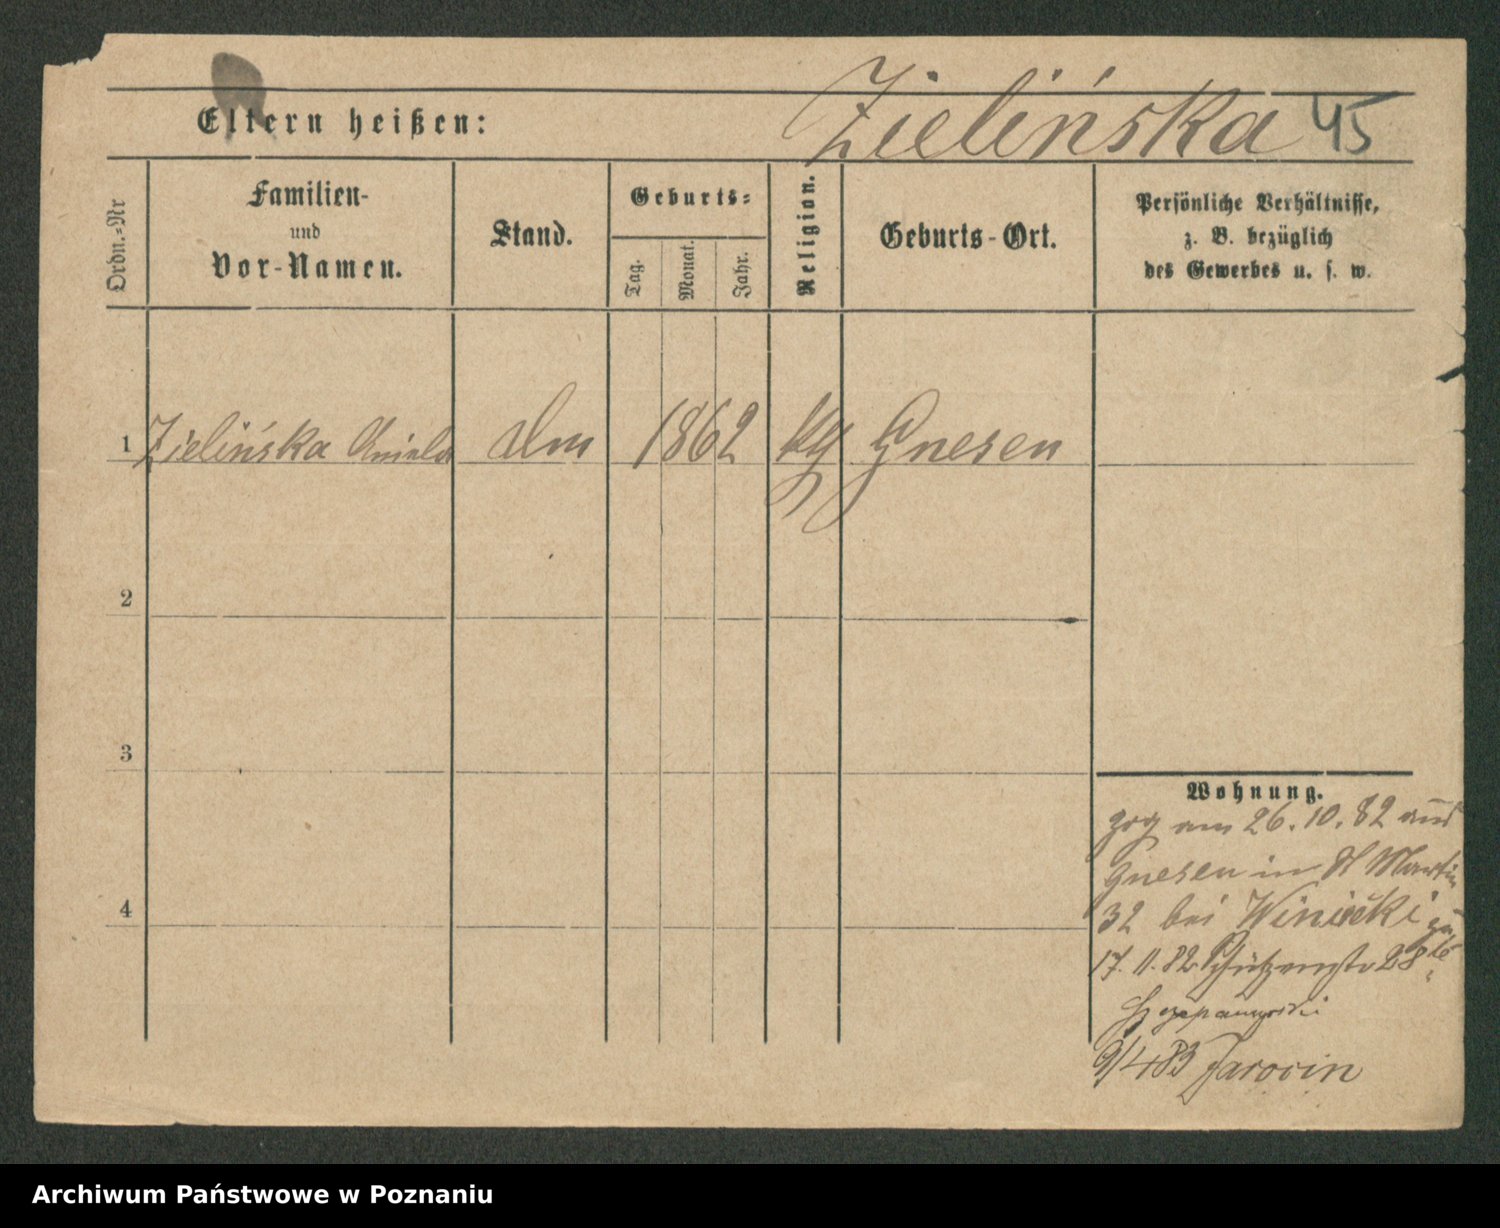 Eltern heißen: Zielińska 45
Ordn.=Nr
Familien-
und
Vor-Namen.
Stand.
Geburts=
Tag.
Monat.
Jahr.
Religion.
Geburts-Ort.
Persönliche Verhältnisse,
z. B. bezüglich
des Gewerbes u. s. w.
1 Zielińska Aniela 1862 Gnesen
2
3
4
Wohnung.
zog am 26.10.82 aus
Gnesen in St Martin
32 bei Winiecki
17.11.82 Schützenstr 28
9/4 83 Jarocin
Archiwum Państwowe w Poznaniu